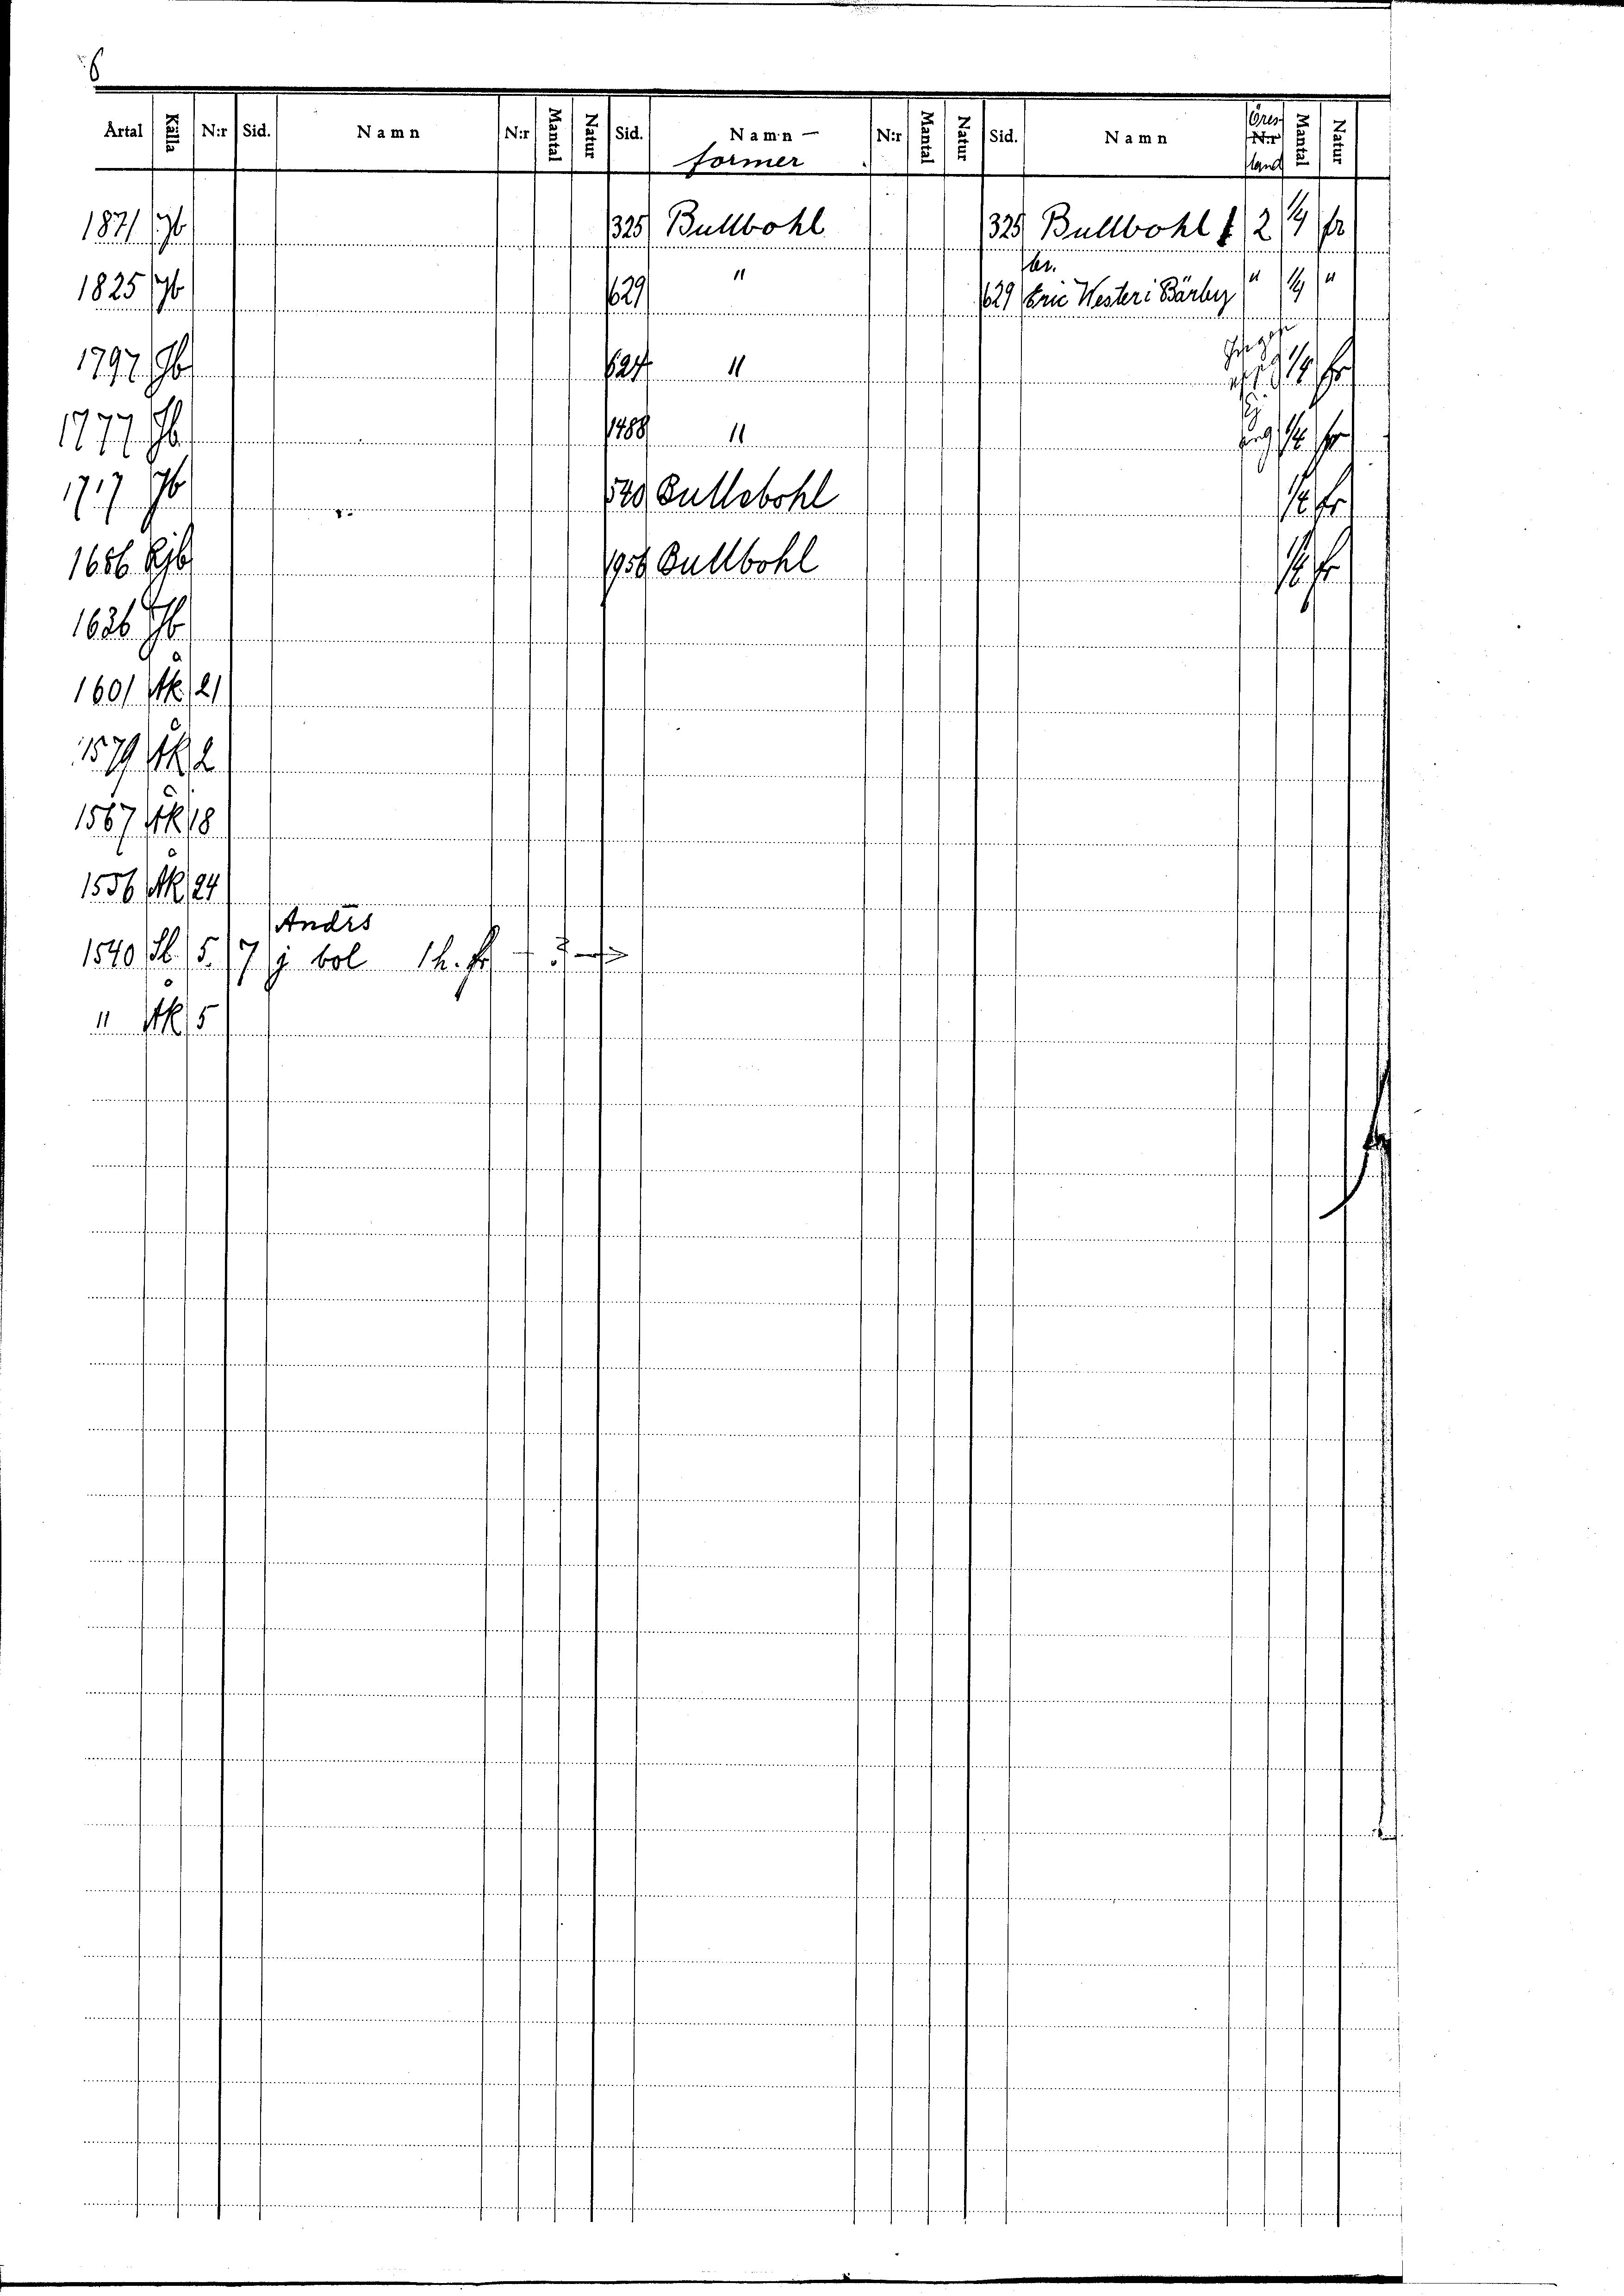 6
Årtal Källa N:r Sid. Namn N:r Mantal Natur Sid. Namn- N:r Mantal Natur Sid. Namn Öres- N:r Mantal Natur
former land
1871 Jb 325 Bullbohl 325 Bullbohl 1 2 1/4 fr
br.
1825 Jb 629 " 629 Eric Wester i Bärby " 1/4 "
1797 Jb 627 " 1/4 fr
1777 Jb 1488 " 1/4 fr
1717 Jb 540 Bullebohl 1/4 fr
1686 Rjb 1956 Bullbohl 1/4 fr
1636 Jb
1601 Åk 21
1579 Åk 2
1567 Åk 18
1556 Åk 24
Andrs
1540 Sb. 5. 7 j bol 1 h. fr - ? →
" Åk 5